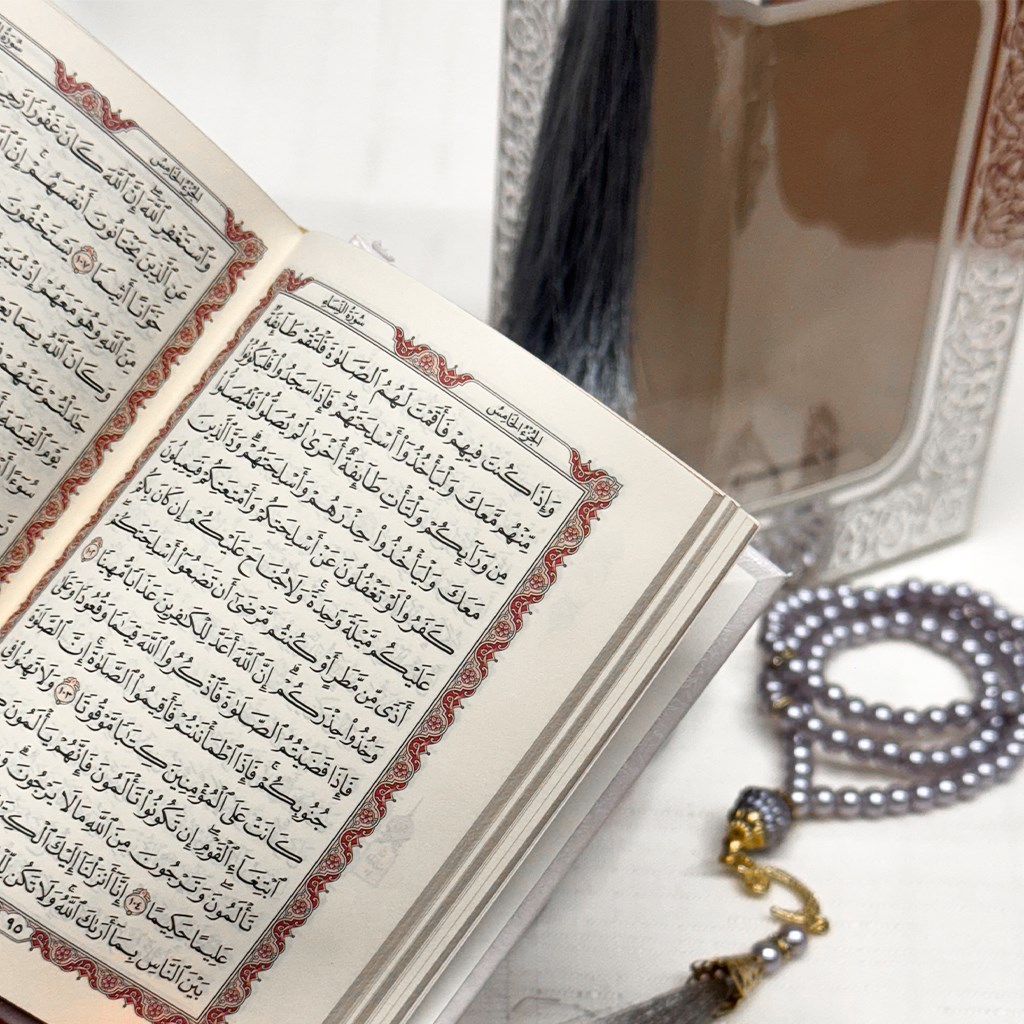 سُورَةُ النِّسَاءِ
الجُزْءُ الخَامِسُ
وَإِذَا كُنتَ فِيهِمْ فَأَقَمْتَ لَهُمُ ٱلصَّلَوٰةَ فَلْتَقُمْ طَآئِفَةٌ
مِّنْهُم مَّعَكَ وَلْيَأْخُذُوٓا۟ أَسْلِحَتَهُمْ فَإِذَا سَجَدُوا۟ فَلْيَكُونُوا۟
مِن وَرَآئِكُمْ وَلْتَأْتِ طَآئِفَةٌ أُخْرَىٰ لَمْ يُصَلُّوا۟ فَلْيُصَلُّوا۟
مَعَكَ وَلْيَأْخُذُوا۟ حِذْرَهُمْ وَأَسْلِحَتَهُمْ ۗ وَدَّ ٱلَّذِينَ
كَفَرُوا۟ لَوْ تَغْفُلُونَ عَنْ أَسْلِحَتِكُمْ وَأَمْتِعَتِكُمْ فَيَمِيلُونَ
عَلَيْكُم مَّيْلَةً وَٰحِدَةً ۚ وَلَا جُنَاحَ عَلَيْكُمْ إِن كَانَ بِكُمْ
أَذًى مِّن مَّطَرٍ أَوْ كُنتُم مَّرْضَىٰٓ أَن تَضَعُوٓا۟ أَسْلِحَتَكُمْ
وَخُذُوا۟ حِذْرَكُمْ ۗ إِنَّ ٱللَّهَ أَعَدَّ لِلْكَٰفِرِينَ عَذَابًا مُّهِينًا ١٠٢
فَإِذَا قَضَيْتُمُ ٱلصَّلَوٰةَ فَٱذْكُرُوا۟ ٱللَّهَ قِيَٰمًا وَقُعُودًا وَعَلَىٰ
جُنُوبِكُمْ ۚ فَإِذَا ٱطْمَأْنَنتُمْ فَأَقِيمُوا۟ ٱلصَّلَوٰةَ ۚ إِنَّ ٱلصَّلَوٰةَ
كَانَتْ عَلَى ٱلْمُؤْمِنِينَ كِتَٰبًا مَّوْقُوتًا ١٠٣ وَلَا تَهِنُوا۟ فِى
ٱبْتِغَآءِ ٱلْقَوْمِ ۖ إِن تَكُونُوا۟ تَأْلَمُونَ فَإِنَّهُمْ يَأْلَمُونَ
تَأْلَمُونَ ۖ وَتَرْجُونَ مِنَ ٱللَّهِ مَا لَا يَرْجُونَ ۗ
عَلِيمًا حَكِيمًا ١٠٤ إِنَّآ أَنزَلْنَآ إِلَيْكَ
بَيْنَ ٱلنَّاسِ بِمَآ أَرَىٰكَ ٱللَّهُ ۚ وَلَا تَكُن
٩٥
الجُزْءُ الخَامِسُ
وَٱسْتَغْفِرِ ٱللَّهَ ۖ إِنَّ ٱللَّهَ كَانَ غَفُورًا
عَنِ ٱلَّذِينَ يَخْتَانُونَ أَنفُسَهُمْ ۚ إِنَّ
خَوَّانًا أَثِيمًا ١٠٧ يَسْتَخْفُونَ
مِنَ ٱللَّهِ وَهُوَ مَعَهُمْ إِذْ
وَكَانَ ٱللَّهُ بِمَا
جَٰدَلْتُمْ عَنْهُمْ
يَوْمَ ٱلْقِيَٰمَةِ
سُوٓءًا